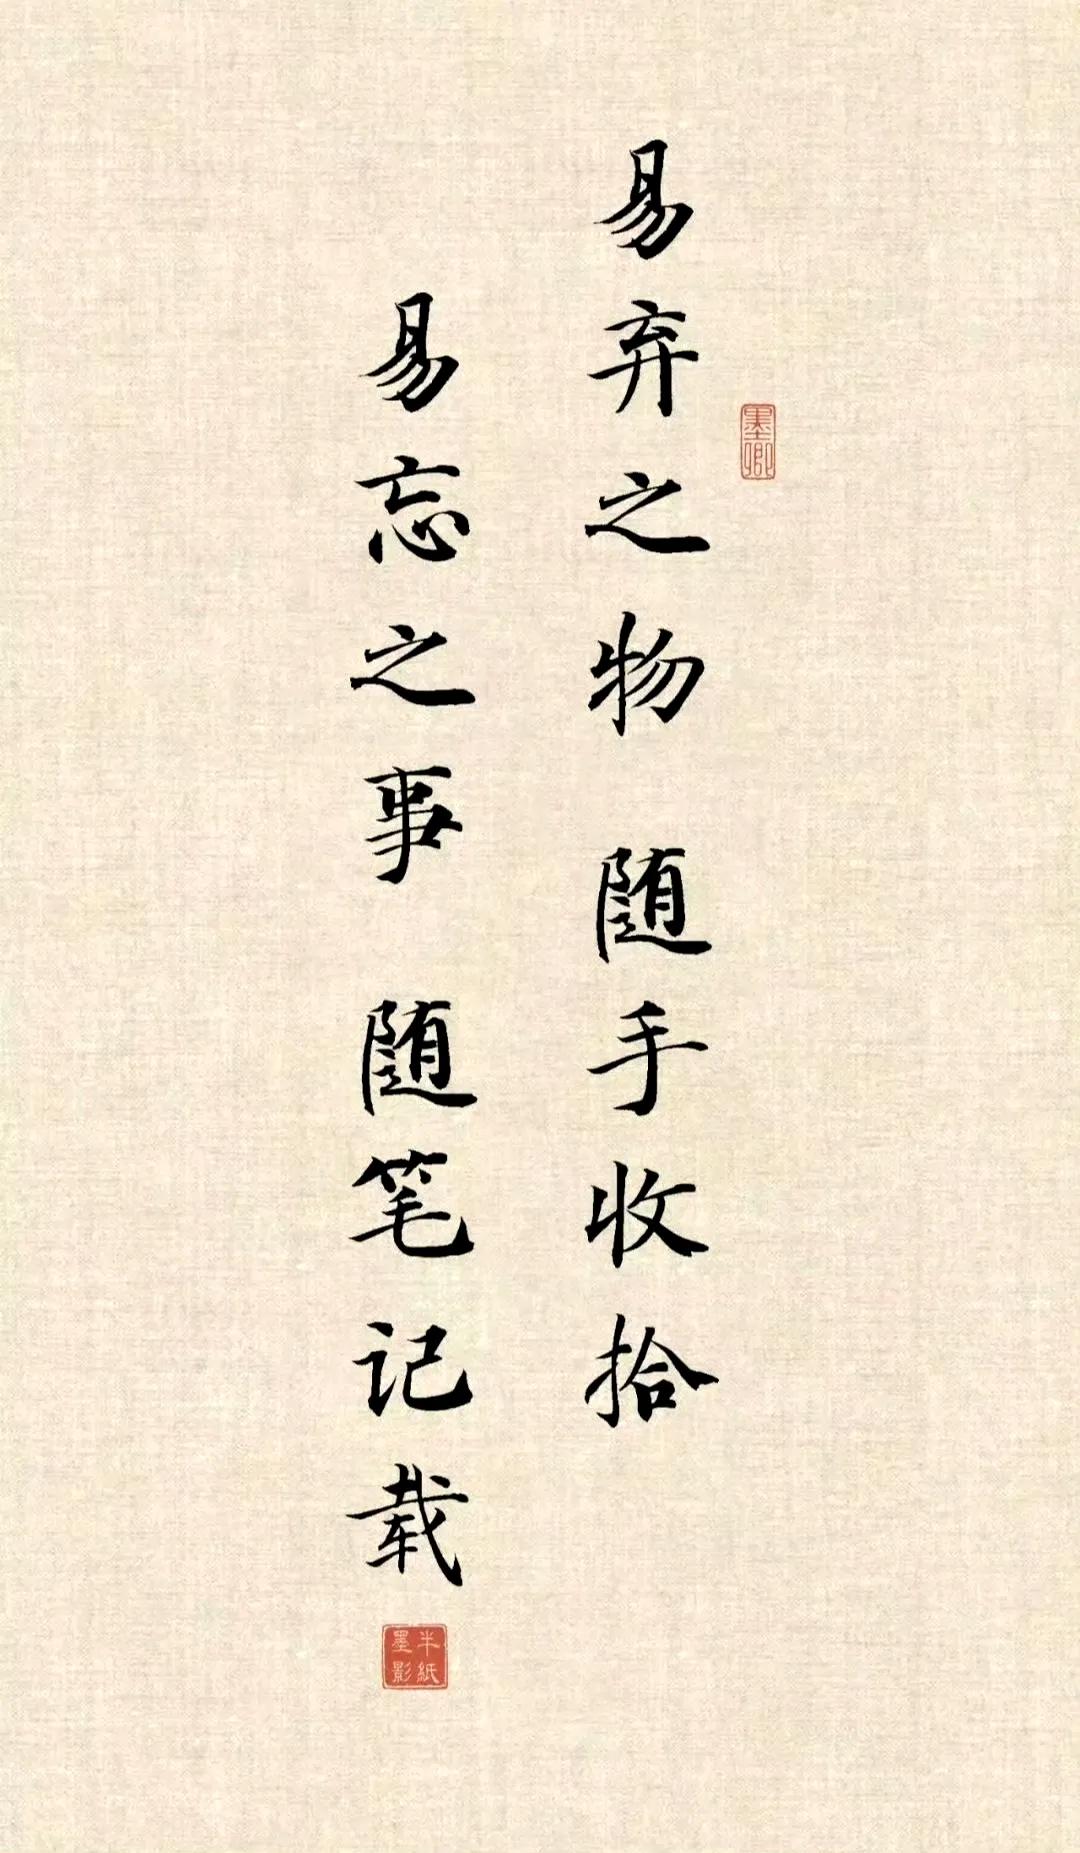 易弃之物 随手收拾
易忘之事 随笔记载
墨卿
半紙墨影